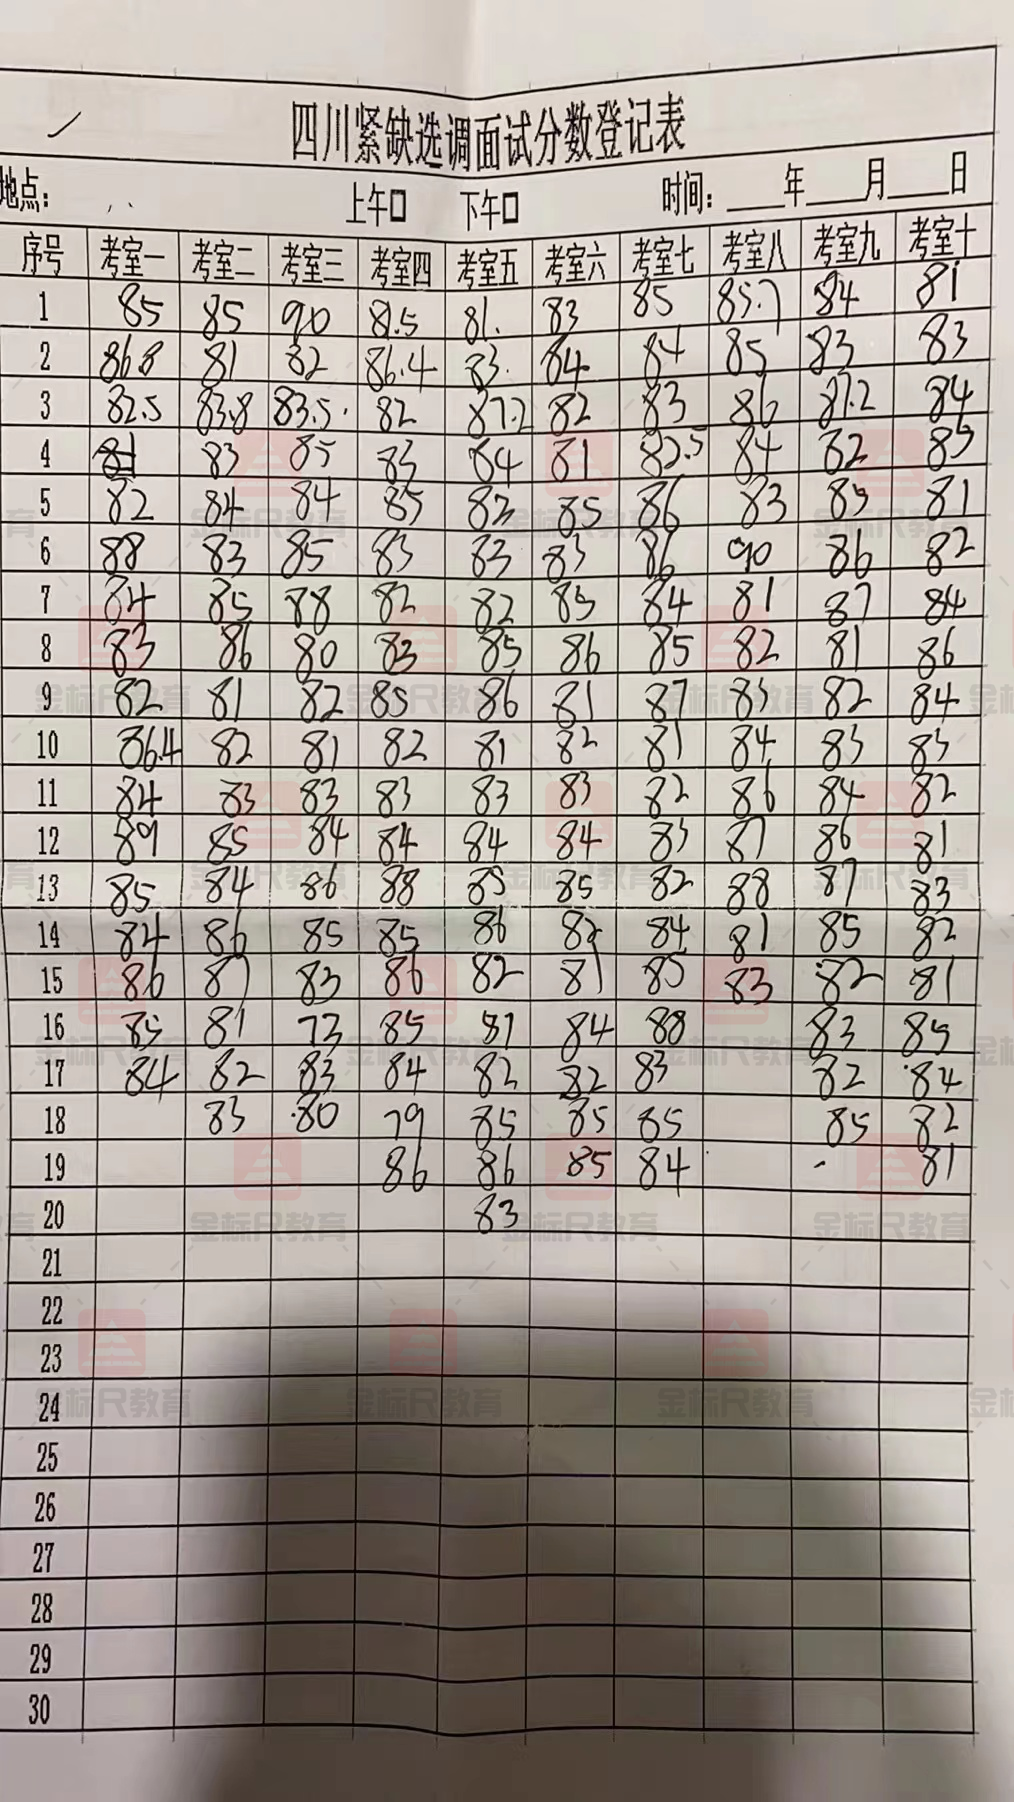 四川紧缺选调面试分数登记表
地点： 上午□ 下午□ 时间：____年____月____日
序号 考室一 考室二 考室三 考室四 考室五 考室六 考室七 考室八 考室九 考室十
1 85 85 90 81.5 81. 83 85 85.7 84 81
2 86.8 81 82 86.4 83. 84 84 85 83 83
3 82.5 83.8 83.5. 82 87.2 82 83 86 87.2 84
4 83 85 83 84 81 82.5 84 82 85
5 82 84 84 85 82 85 86 83 85 81
6 88 83 85 83 83 83 86 90 86 82
7 84 85 88 82 82 85 84 81 87 84
8 83 86 80 83 85 86 85 82 81 86
9 82 81 82 85 86 81 87 83 82 84
10 86.4 82 81 82 81 82 81 84 83 83
11 84 83 83 83 83 83 82 86 84 82
12 89 85 84 84 84 84 83 87 86 81
13 85 84 86 88 85 85 82 88 87 83
14 84 86 85 85 86 84 81 85 82
15 86 87 83 86 82 81 85 83 82 81
16 85 81 73 85 84 88 83 85
17 84 82 83 84 82 82 83 82 84
18 83 80 79 85 85 85 85 82
19 86 86 85 84 81
20 83
21
22
23
24
25
26
27
28
29
30
金标尺教育